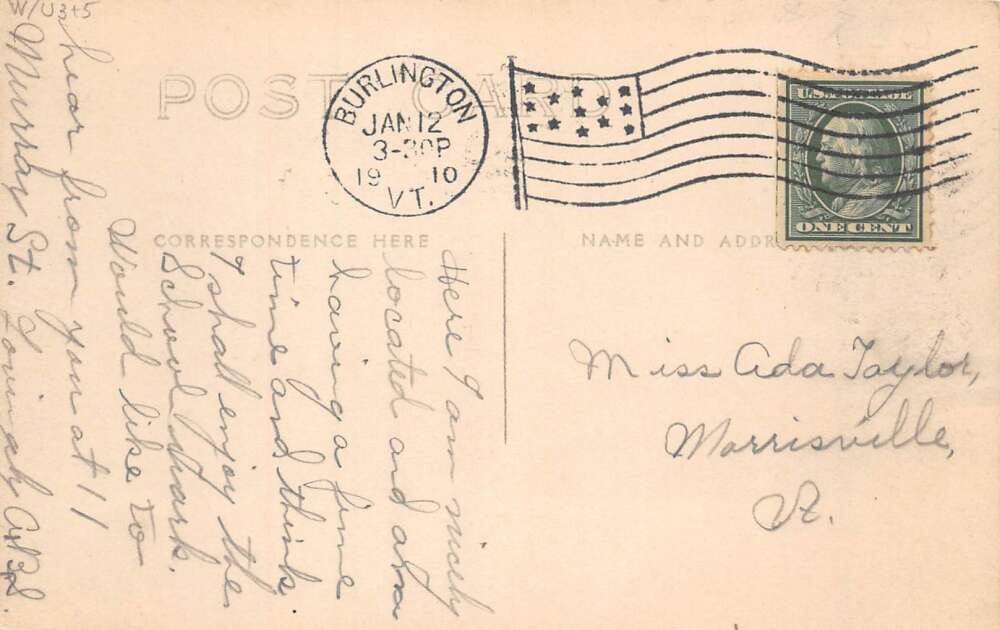 W/U3+5
POST CARD
BURLINGTON
JAN 12
3-30P
19 10
VT.
U.S. POSTAGE
ONE CENT
CORRESPONDENCE HERE
NAME AND ADDR
Here I am nicely
located and am
having a fine
time and think
I shall enjoy the
School work.
Would like to
hear from you at 11
Murray St. Lovingly
Miss Ada Taylor,
Morrisville,
Vt.